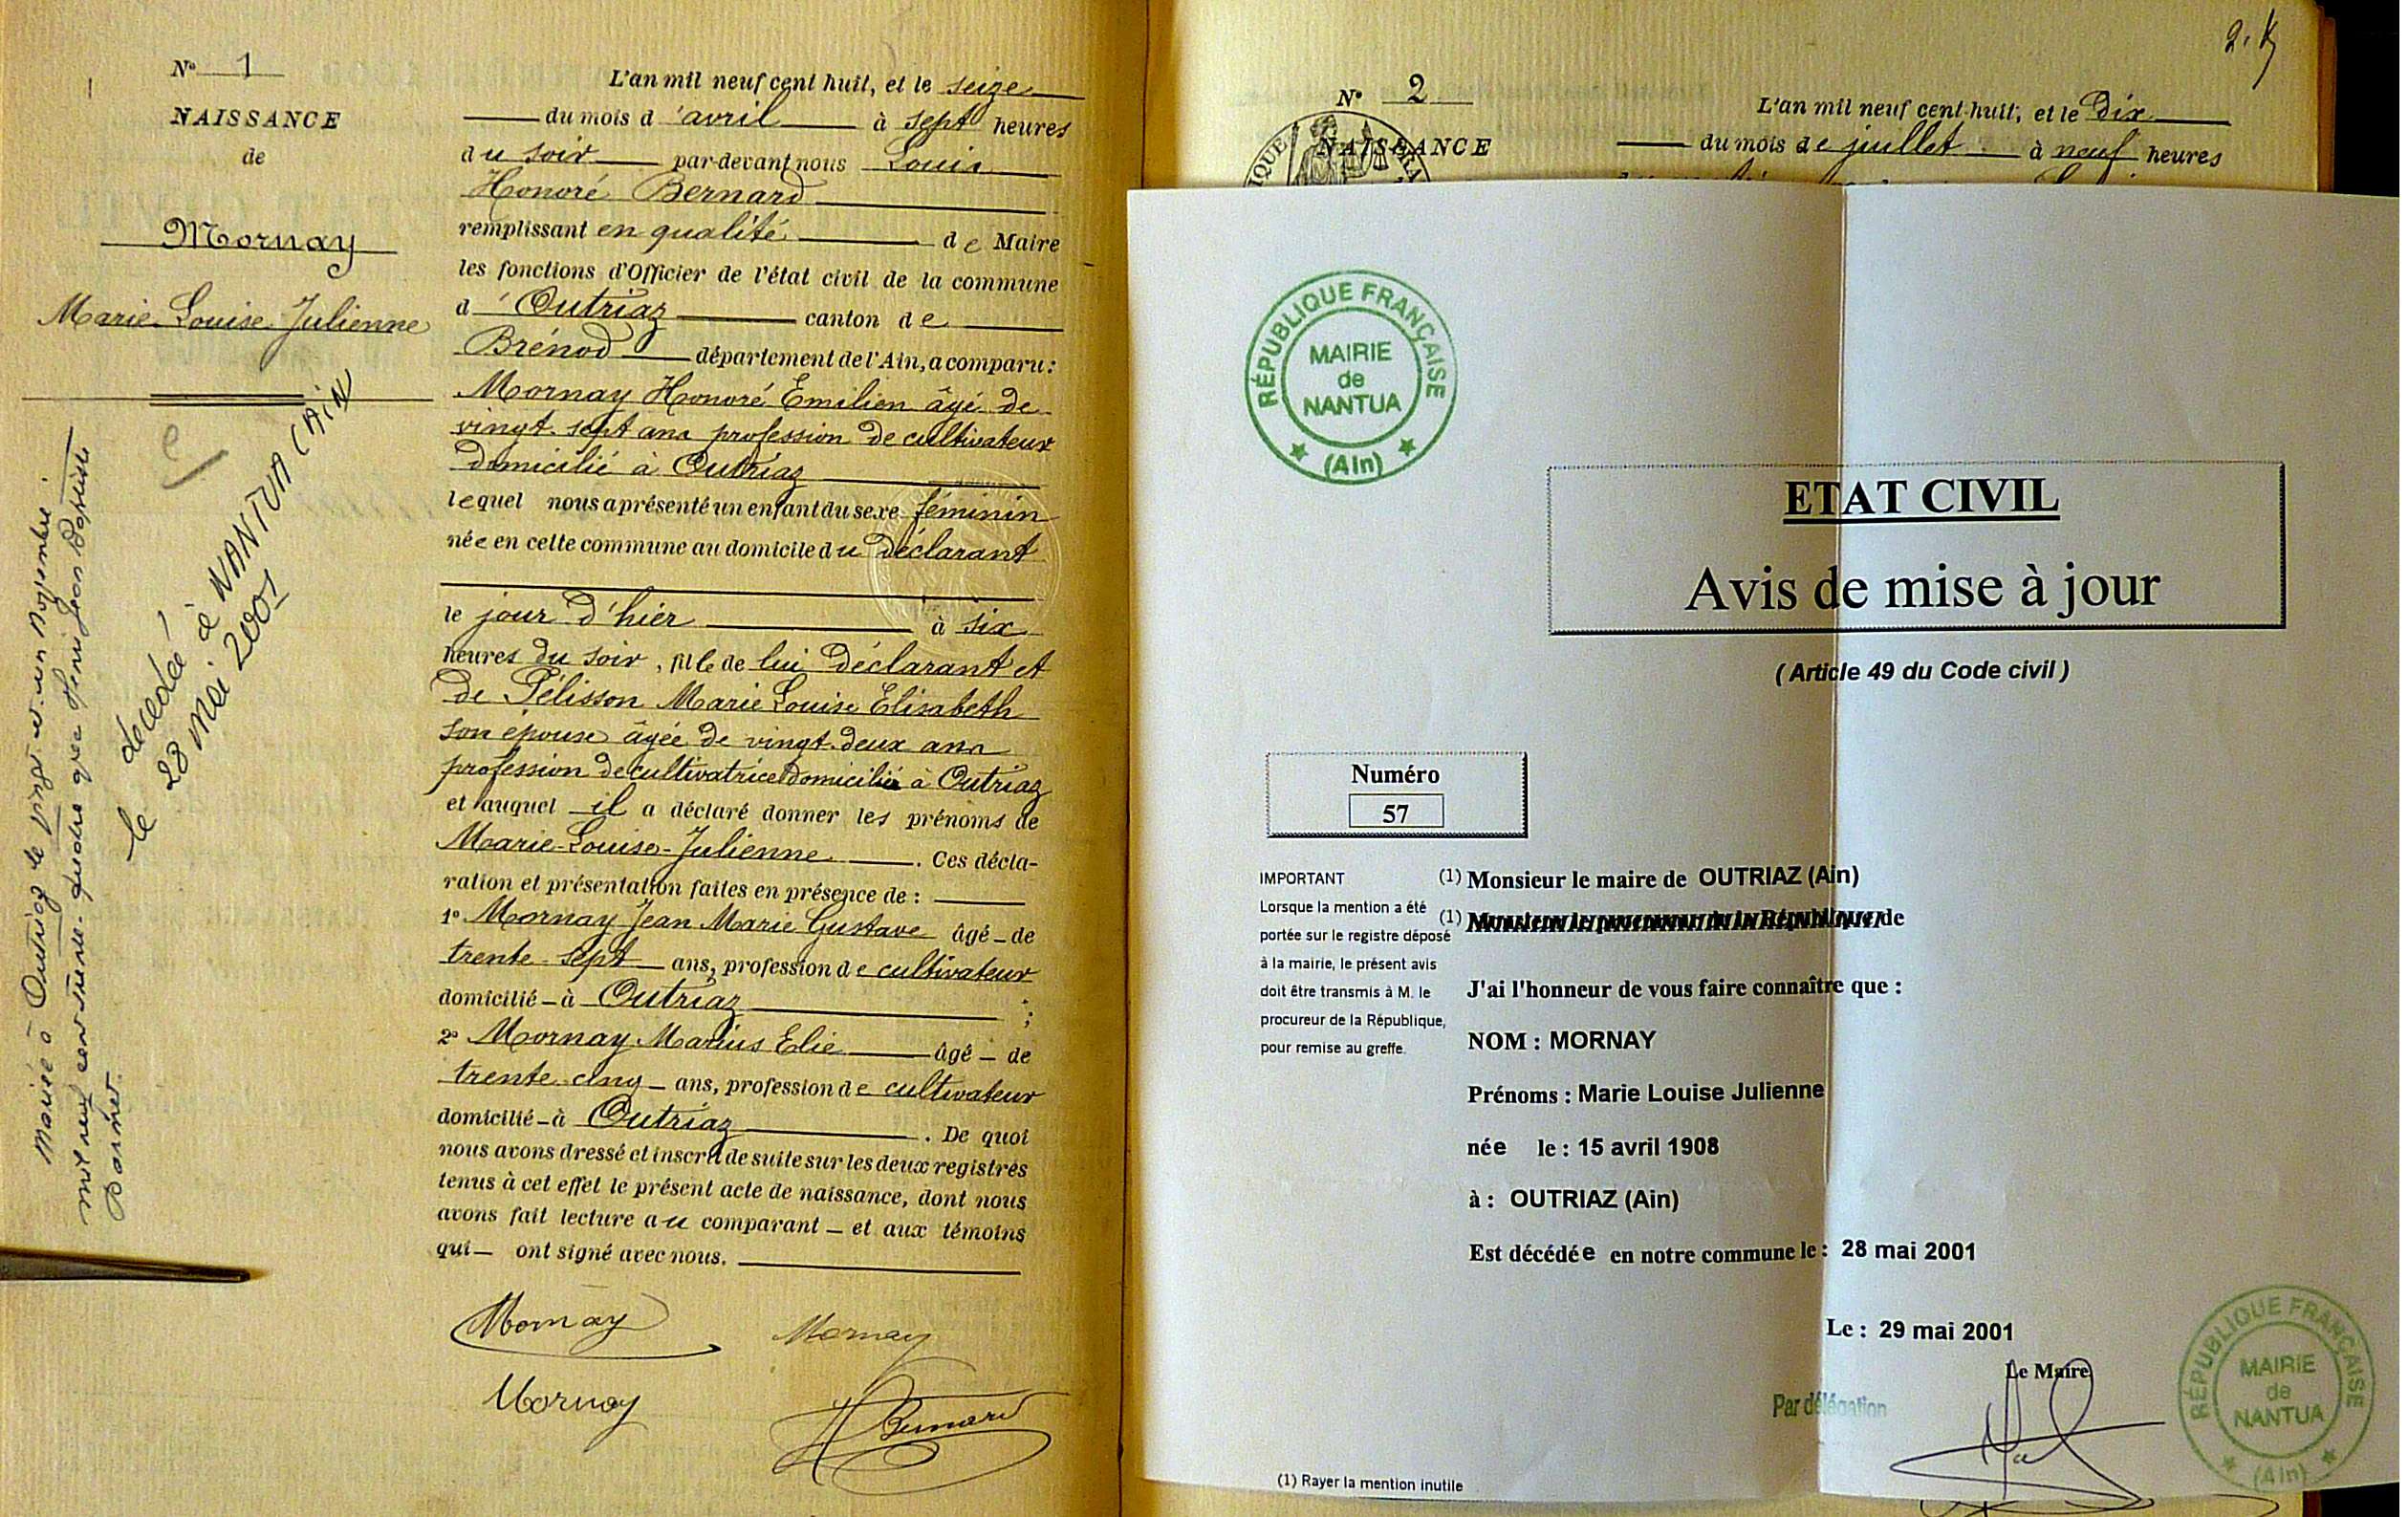 N° 1
NAISSANCE
de
Mornay
Marie-Louise-Julienne
Mariée à Outriaz le vingt et un Novembre
mil neuf cent trente-quatre avec Henri Jean Baptiste
décédée à NANTUA (AIN
le 28 mai 2001
L'an mil neuf cent huit, et le seize
du mois d'avril à sept heures
du soir par-devant nous Louis
Honoré Bernard
remplissant en qualité de Maire
les fonctions d'Officier de l'état civil de la commune
d'Outriaz canton de
Brénod département de l'Ain, a comparu :
Mornay Honoré Emilien âgé de
vingt-sept ans profession de cultivateur
domicilié à Outriaz
lequel nous a présenté un enfant du sexe féminin
née en cette commune au domicile du déclarant
le jour d'hier à six
heures du soir, fille de lui déclarant et
de Pélisson Marie Louise Elisabeth
son épouse âgée de vingt-deux ans
profession de cultivatrice domiciliée à Outriaz
et auquel il a déclaré donner les prénoms de
Marie-Louise-Julienne. Ces décla-
ration et présentation faites en présence de :
1° Mornay Jean Marie Gustave âgé de
trente-sept ans, profession de cultivateur
domicilié à Outriaz ;
2° Mornay Marius Elie âgé de
trente-cinq ans, profession de cultivateur
domicilié à Outriaz. De quoi
nous avons dressé et inscrit de suite sur les deux registres
tenus à cet effet le présent acte de naissance, dont nous
avons fait lecture au comparant et aux témoins
qui ont signé avec nous.
Mornay Mornay
Mornay Bernard
N° 2
NAISSANCE
L'an mil neuf cent huit, et le dix
du mois de juillet à neuf heures
RÉPUBLIQUE FRANÇAISE
MAIRIE
de
NANTUA
(Ain)
ETAT CIVIL
Avis de mise à jour
( Article 49 du Code civil )
Numéro
57
IMPORTANT
Lorsque la mention a été
portée sur le registre déposé
à la mairie, le présent avis
doit être transmis à M. le
procureur de la République,
pour remise au greffe.
(1) Monsieur le maire de OUTRIAZ (Ain)
(1) Monsieur le procureur de la République de
J'ai l'honneur de vous faire connaître que :
NOM : MORNAY
Prénoms : Marie Louise Julienne
née le : 15 avril 1908
à : OUTRIAZ (Ain)
Est décédée en notre commune le : 28 mai 2001
Le : 29 mai 2001
Le Maire
Par délégation
RÉPUBLIQUE FRANÇAISE
MAIRIE
de
NANTUA
(Ain)
(1) Rayer la mention inutile